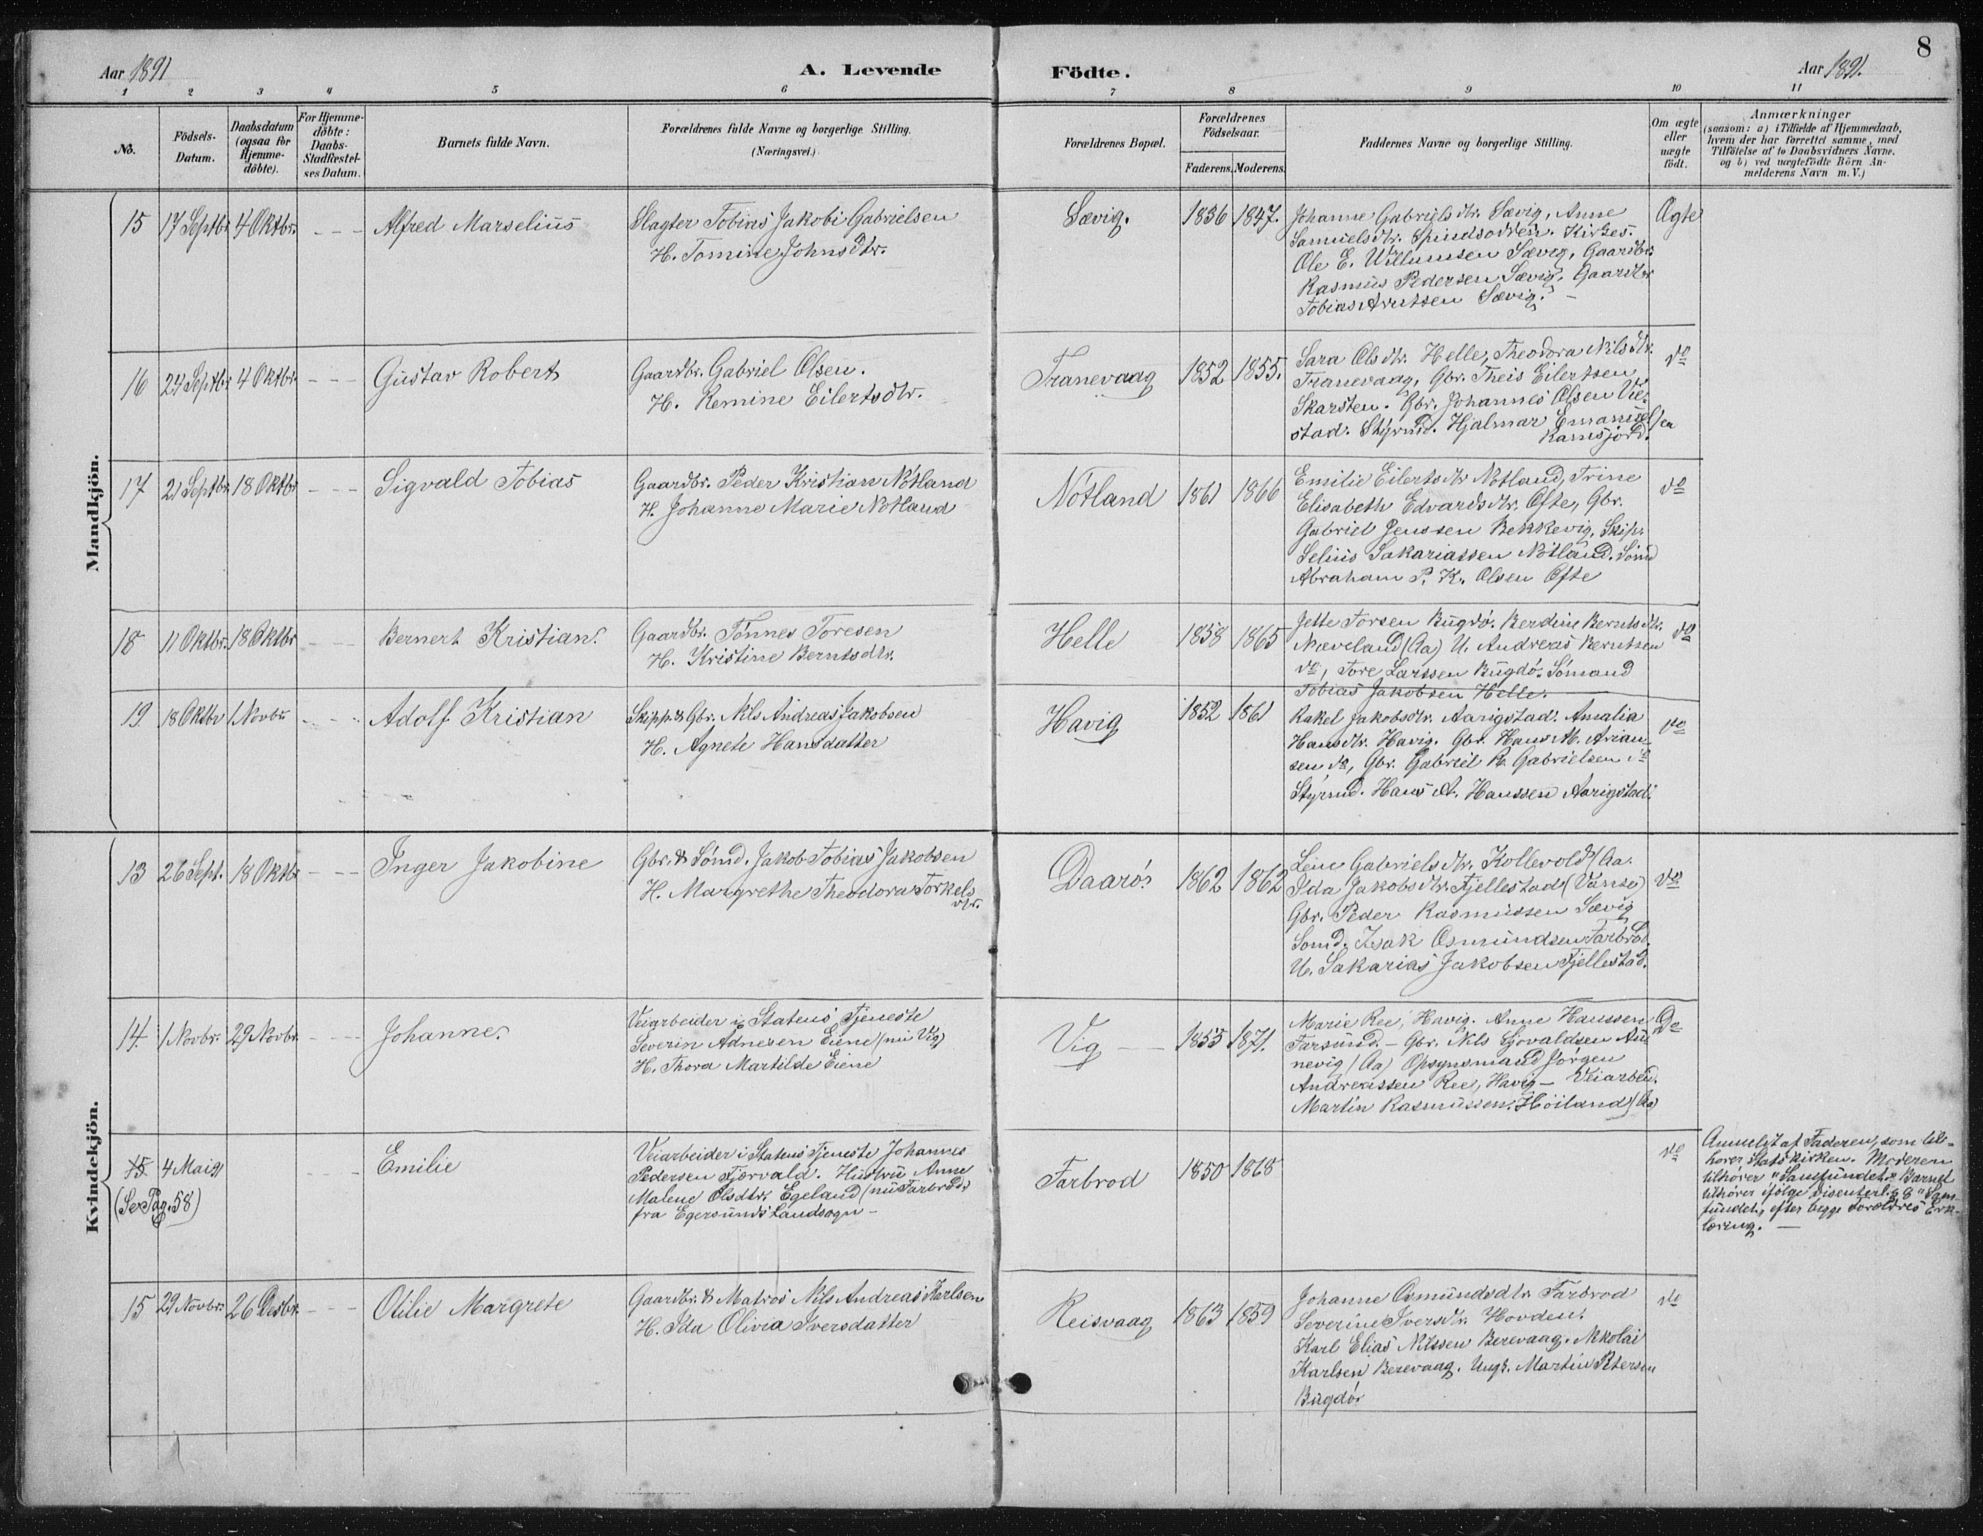 8
Aar 1891
A. Levende
Födte.
Aar 1891.
1 2 3 4 5 6 7 8 9 10 11
No.
Födsels-
Datum.
Daabsdatum
(ogsaa for
Hjemme-
døbte).
For Hjemme-
døbte:
Daabs-
Stadfæstel-
ses Datum.
Barnets fulde Navn.
Forældrenes fulde Navne og borgerlige Stilling.
(Næringsvei.)
Forældrenes Bopæl.
Forældrenes
Födselsaar.
Faderens. Moderens.
Faddernes Navne og borgerlige Stilling.
Om ægte
eller
uægte
født.
Anmærkninger
(saasom: a) i Tilfælde af Hjemmedaab,
hvem der har forrettet samme, med
Tilföielse af to Daabsvidners Navne,
og b) ved uægtefödte Börn An-
melderens Navn m. V.)
Mandkjön.
15 17 Septbr. 4 Oktbr. - - - Alfred Marselius
Slagter Tobias Jakobi Gabrielsen
H. Tomine Johnsdtr.
Sævig. 1836 1847.
Johanne Gabrielsdtr. Sævig, Anne
Samuelsdtr. Spindsodden. Kirkes.
Ole E. Willumsen Sævig, Gaardbr.
Rasmus Pedersen Sævig, Gaardbr
Tobias Arntsen Sævig. -
Ægte
16 24 Septbr 4 Oktbr. - - - Gustav Robert
Gaardbr. Gabriel Olsen.
H. Remine Eilertsdtr.
Tranevaag 1852 1855.
Sara Olsdtr. Helle, Theodora Nilsdtr.
Tranevaag, Gbr. Theis Eilertsen
Skarsten. Gbr. Johannes Olsen Ve-
stad. Styrmd. Hjalmar Emanuelsen
Ramsjord.
do
17 21 Septbr. 18 Oktbr - - - Sigvald Tobias
Gaardbr. Peder Kristian Nötland
H. Johanne Marie Nötland
Nötland 1861 1866
Emilie Eilertsdtr Nötland, Trine
Elisabeth Edvardsdtr. Ofte, Gbr.
Gabriel Jenssen Bekkevig, Skip.
Selius Sakariassen Nötland. Sömd
Abraham P. K. Olsen Ofte
do
18 11 Oktbr. 18 Oktbr - - - Bernert Kristian.
Gaardbr. Tönnes Toresen
H. Kristine Berntsdtr.
Helle 1858 1865
Jette Torsen Bugdö. Berdine Berntsdtr.
Næveland (Aa) U. Andreas Berntsen
do, Tore Larssen Bugdö. Sömand
Tobias Jakobsen Helle.
do
19 18 Oktbr 1 Novbr - - - Adolf Kristian
Skipp. & Gbr. Nils Andreas Jakobsen
H. Agnete Hansdatter
Havig 1852 1861
Rakel Jakobsdtr. Aarigstad. Amalia
Hansdtr. Havig. Gbr. Hans M. Arian-
sen do, Gbr. Gabriel R. Gabrielsen do
Styrmd. Hans A. Hanssen Aarigstad.
do
Kvindekjön.
13 26 Sept. 18 Oktbr - - - Inger Jakobine
Gbr. & Sömd. Jakob Tobias Jakobsen
H. Margrethe Theodora Torkels
dtr.
Daarö. 1862 1862
Leine Gabrielsdtr. Kollevold (Aa.
Ida Jakobsdtr. Fjellestad (Vanse)
Gbr. Peder Rasmussen Sævig
Somd. Isak Osmundsen Farbrod.
U. Sakarias Jakobsen Fjellestad.
do
14. 1 Novbr. 29 Novbr. - - - Johanne.
Veiarbeider i Statens Tjeneste
Severin Adnesen Eiene (nu Vig)
H. Thora Martilde Eiene
Vig - - 1855 1871.
Marie Ree, Havig. Anne Hanssen
Farsund - Gbr. Nils Sjovaldsen Au-
nevig (Aa) Opsynsmand Jörgen
Andreassen Ree, Havig - Veiarbeid.
Martin Rasmussen Höiland (Aa)
Do
15. 4 Mai 91 - - - Emilie
(Se Pag. 58)
Veiarbeider i Statens Tjeneste Johannes
Pedersen Fjorvald. Hustru Anne
Malene Olsdtr. Egeland (nu Farbrod)
fra Egersunds Landsogn -
Farbrod 1850 1868
do
Anmeldt af Faderen, som til-
hører Statskirken. Moderen
tilhører "Samfundet". Barnet
tilhører ifölge Disenterl. § 8 "Sam-
fundet, efter begge Forældres Erk-
læring. -
15 29 Novbr. 26 Desbr. - - - Otilie Margrete
Gaardbr. & Matros Nils Andreas Karlsen
H. Ida Olivia Iversdatter
Reisvaag 1863 1859
Johanne Osmundsdtr Farbrod
Severine Iversdtr. Hovden.
Karl Elias Nilssen Berevaag. Nikolai
Karlsen Berevaag. Ungk. Martin Petersen
Bugdör
do